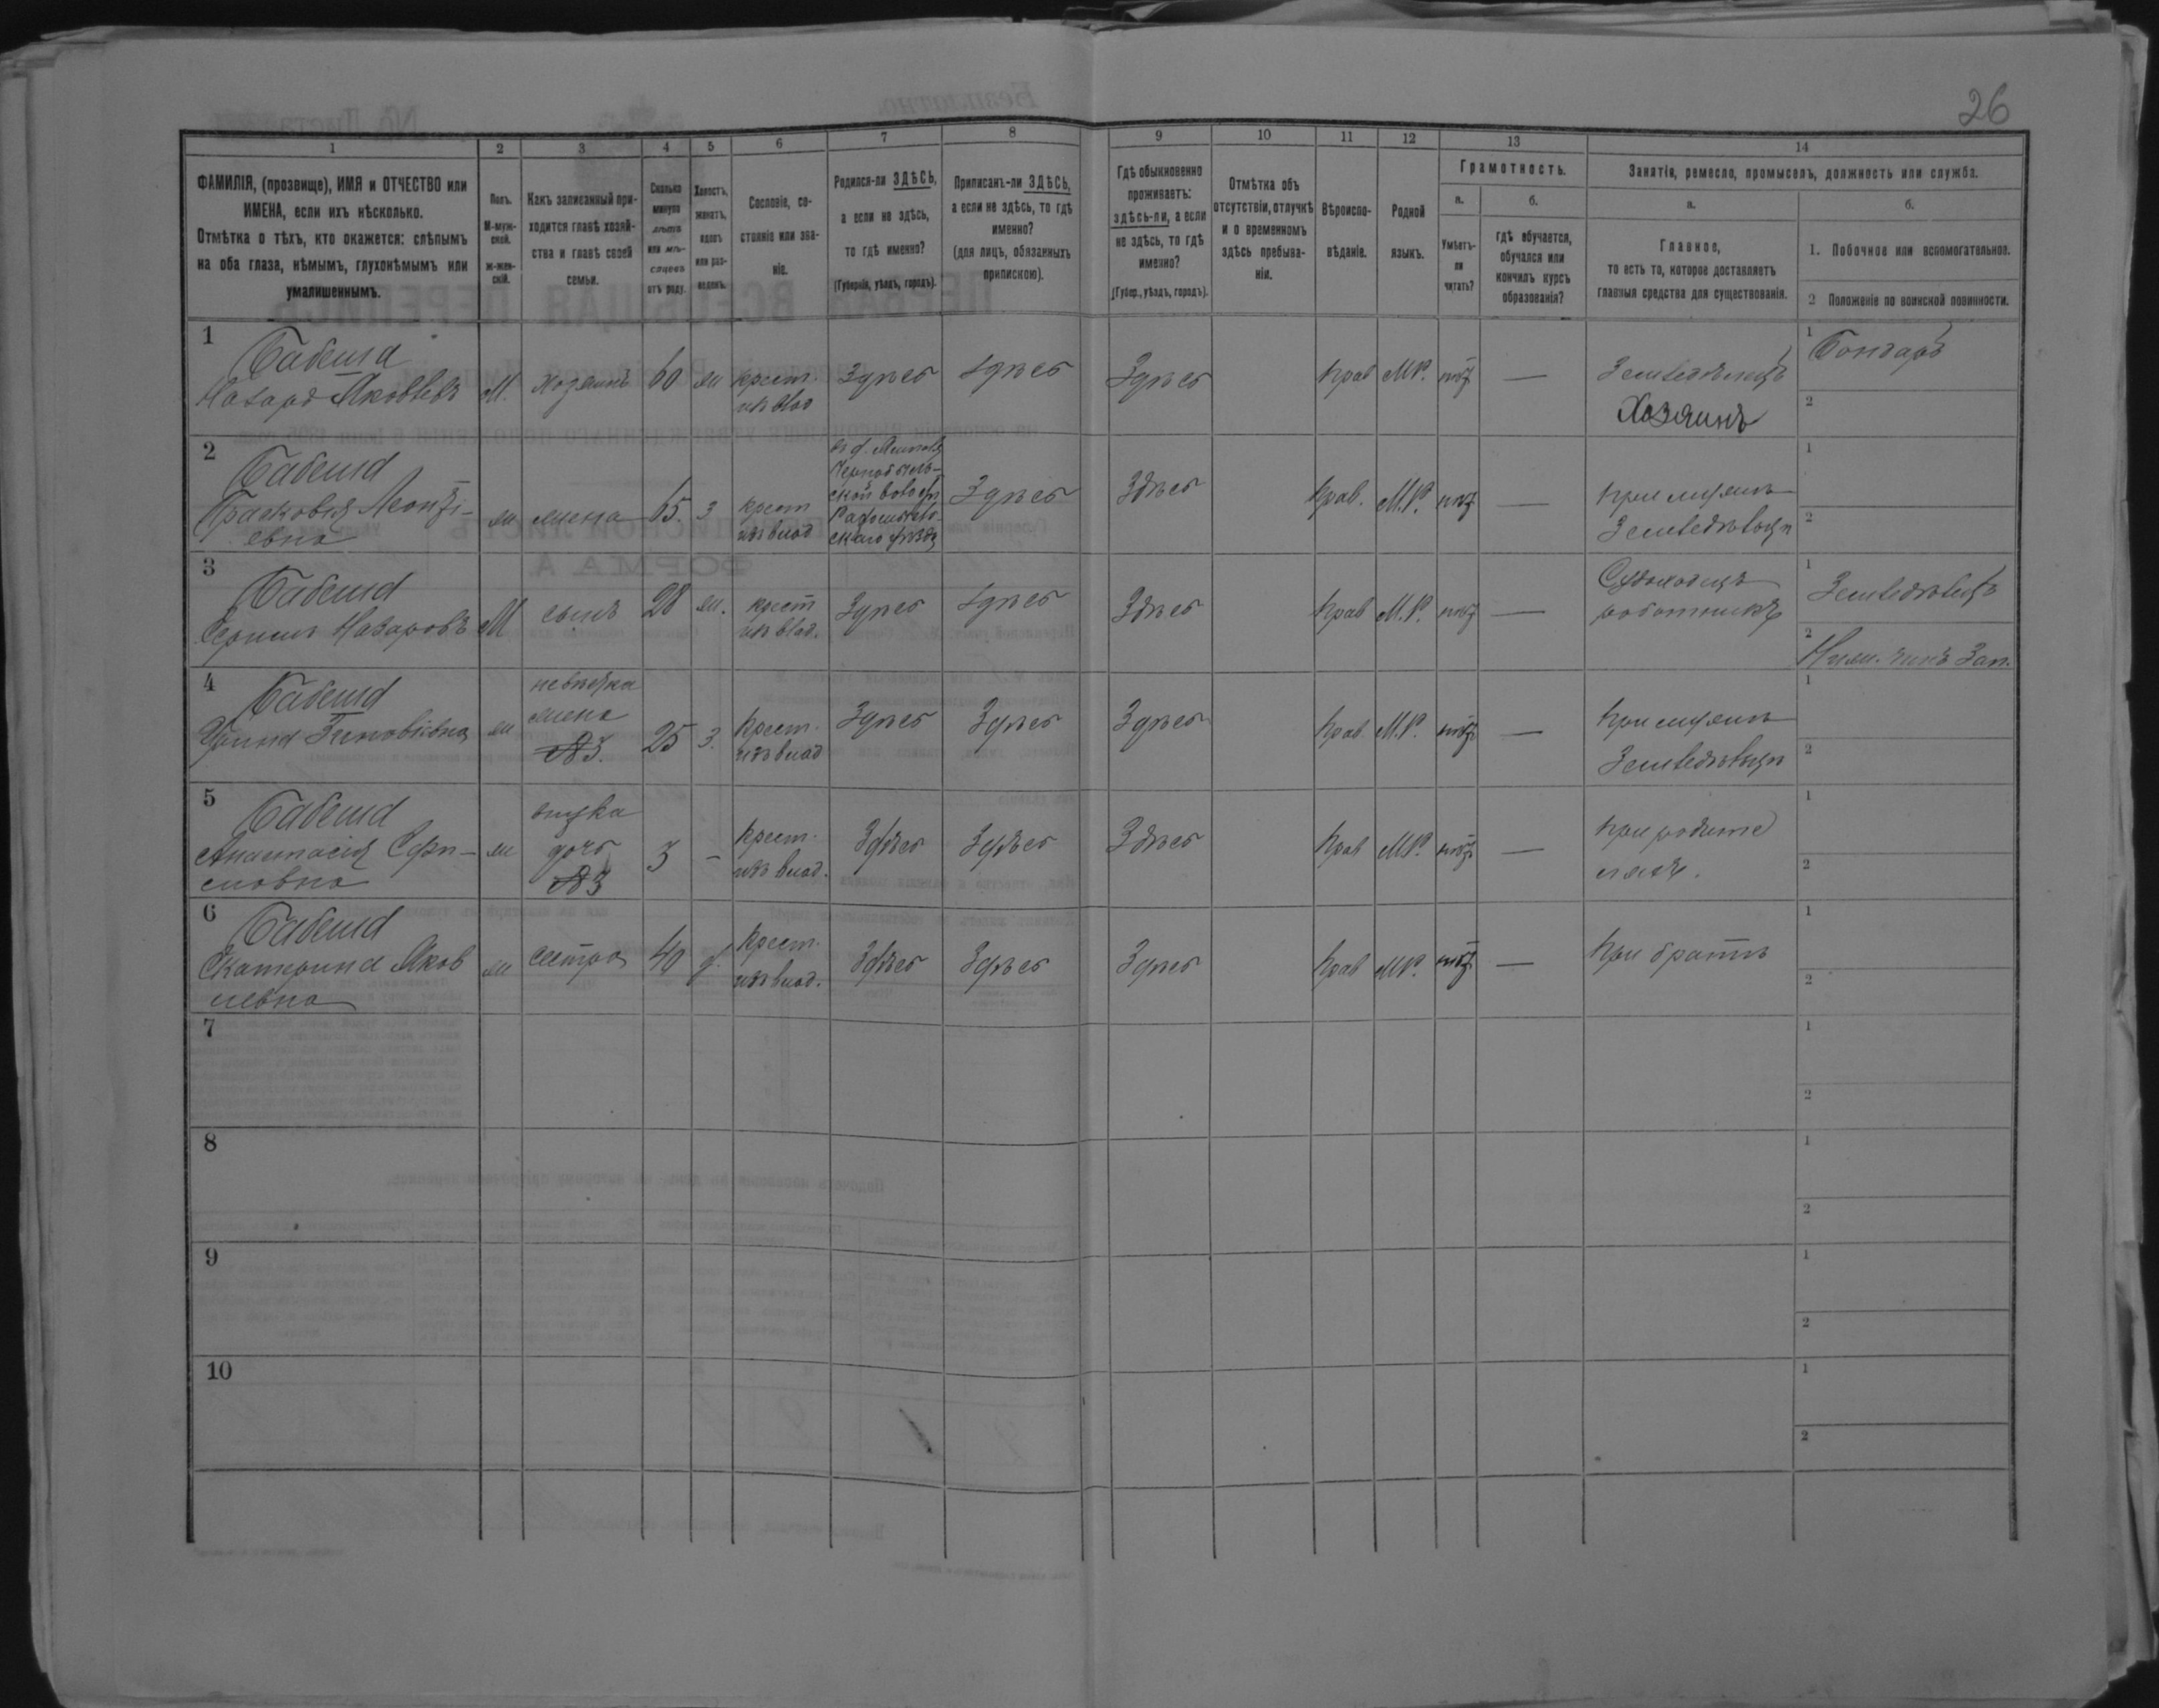 26
1 2 3 4 5 6 7 8 9 10 11 12 13 14
ФАМИЛІЯ, (прозвище), ИМЯ и ОТЧЕСТВО или
ИМЕНА, если ихъ нѣсколько.
Отмѣтка о тѣхъ, кто окажется: слѣпымъ
на оба глаза, нѣмымъ, глухонѣмымъ или
умалишеннымъ.
Полъ.
М-муж-
ской.
ж-жен-
скій.
Какъ записанный при-
ходится главѣ хозяй-
ства и главѣ своей
семьи.
Сколько
минуло
лѣтъ
или мѣ-
сяцевъ
отъ роду.
Холостъ,
женатъ,
вдовъ
или раз-
веденъ.
Сословіе, со-
стояніе или зва-
ніе.
Родился-ли ЗДѢСЬ,
а если не здѣсь,
то гдѣ именно?
(Губернія, уѣздъ, городъ).
Приписанъ-ли ЗДѢСЬ,
а если не здѣсь, то гдѣ
именно?
(для лицъ, обязанныхъ
припискою).
Гдѣ обыкновенно
проживаетъ:
здѣсь-ли, а если
не здѣсь, то гдѣ
именно?
(Губер., уѣздъ, городъ).
Отмѣтка объ
отсутствіи, отлучкѣ
и о временномъ
здѣсь пребыва-
ніи.
Вѣроиспо-
вѣданіе.
Родной
языкъ.
Грамотность.
а.
Умѣетъ-
ли
читать?
б.
Гдѣ обучается,
обучался или
кончилъ курсъ
образованія?
Занятіе, ремесло, промыселъ, должность или служба.
а.
Главное,
то есть то, которое доставляетъ
главныя средства для существованія.
б.
1. Побочное или вспомогательное.
2 Положеніе по воинской повинности.
1
Бабеша
Назаръ Яковлевъ
М.
хозяинъ
60
ж
крест.
изъ влад
Здѣсь
Здѣсь
Здѣсь
Прав
М.Р.
нѣт
—
Земледѣлецъ
Хозяинъ
1 Бондарь
2
2
Бабеша
Прасковія Леонті-
евна
ж
жена
65.
з
крест
изъ влад
скаго уѣзда
Здѣсь
Здѣсь
Прав.
М.Р.
нѣт
—
При мужѣ
1
2
3
Бабеша
Назаровъ
М
сынъ
28
ж.
крест
изъ влад.
Здѣсь
Здѣсь
Здѣсь
Прав
М.Р.
нѣт
—
работникъ
1 Земледѣлецъ
2 Ниж. чинъ Зап.
4
Бабеша
ж
невѣстка
жена
№3.
25
з.
Крест.
изъ влад
Здѣсь
Здѣсь
Здѣсь
Прав.
М.Р.
нѣт
—
При мужѣ
1
2
5
Бабеша
Анастасія
ж
внучка
дочь
№3
3
-
Крест.
изъ влад.
Здѣсь
Здѣсь
Здѣсь
Прав
М.Р.
нѣт
—
При родите
ляхъ.
1
2
6
Бабеша
Екатерина Яков
левна
ж
сестра
40
д.
Крест.
изъ влад.
Здѣсь
Здѣсь
Здѣсь
Прав
М.Р.
нѣт
—
При братѣ
1
2
7
1
2
8
1
2
9
1
2
10
1
2